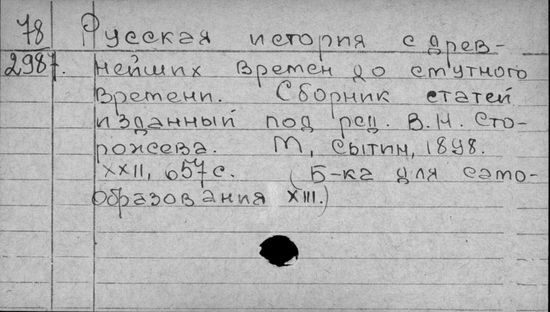 78 Русская история с древ-
2987. нейших времен до смутного
времени. Сборник статей
изданный под ред. В.Н. Сто-
рожева. М, Сытин, 1898.
XXII, 657 с. (Б-ка для само-
образования XIII.)